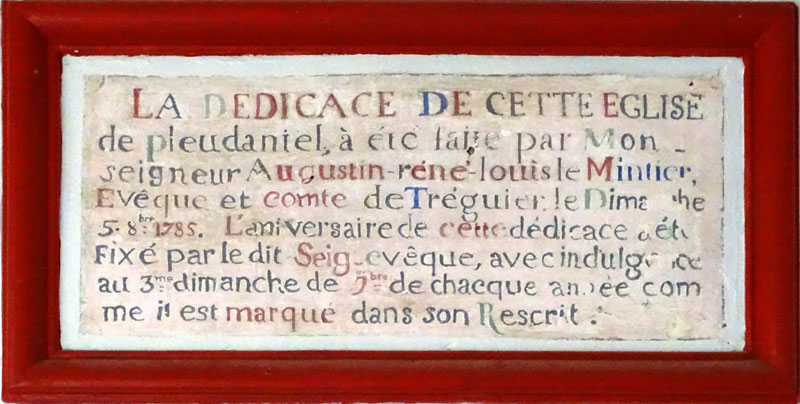 LA DEDICACE DE CETTE EGLISE
de pleudaniel, à été faite par Mon-
seigneur Augustin-réné-louis le Mintier,
Evêque et comte de Tréguier, le Dimanche
5. 8.bre 1785. L'aniversaire de cette dédicace a été
Fixé par le dit Seig. evêque, avec indulgence
au 3me dimanche de 7bre de chacque année com
me il est marqué dans son Rescrit.